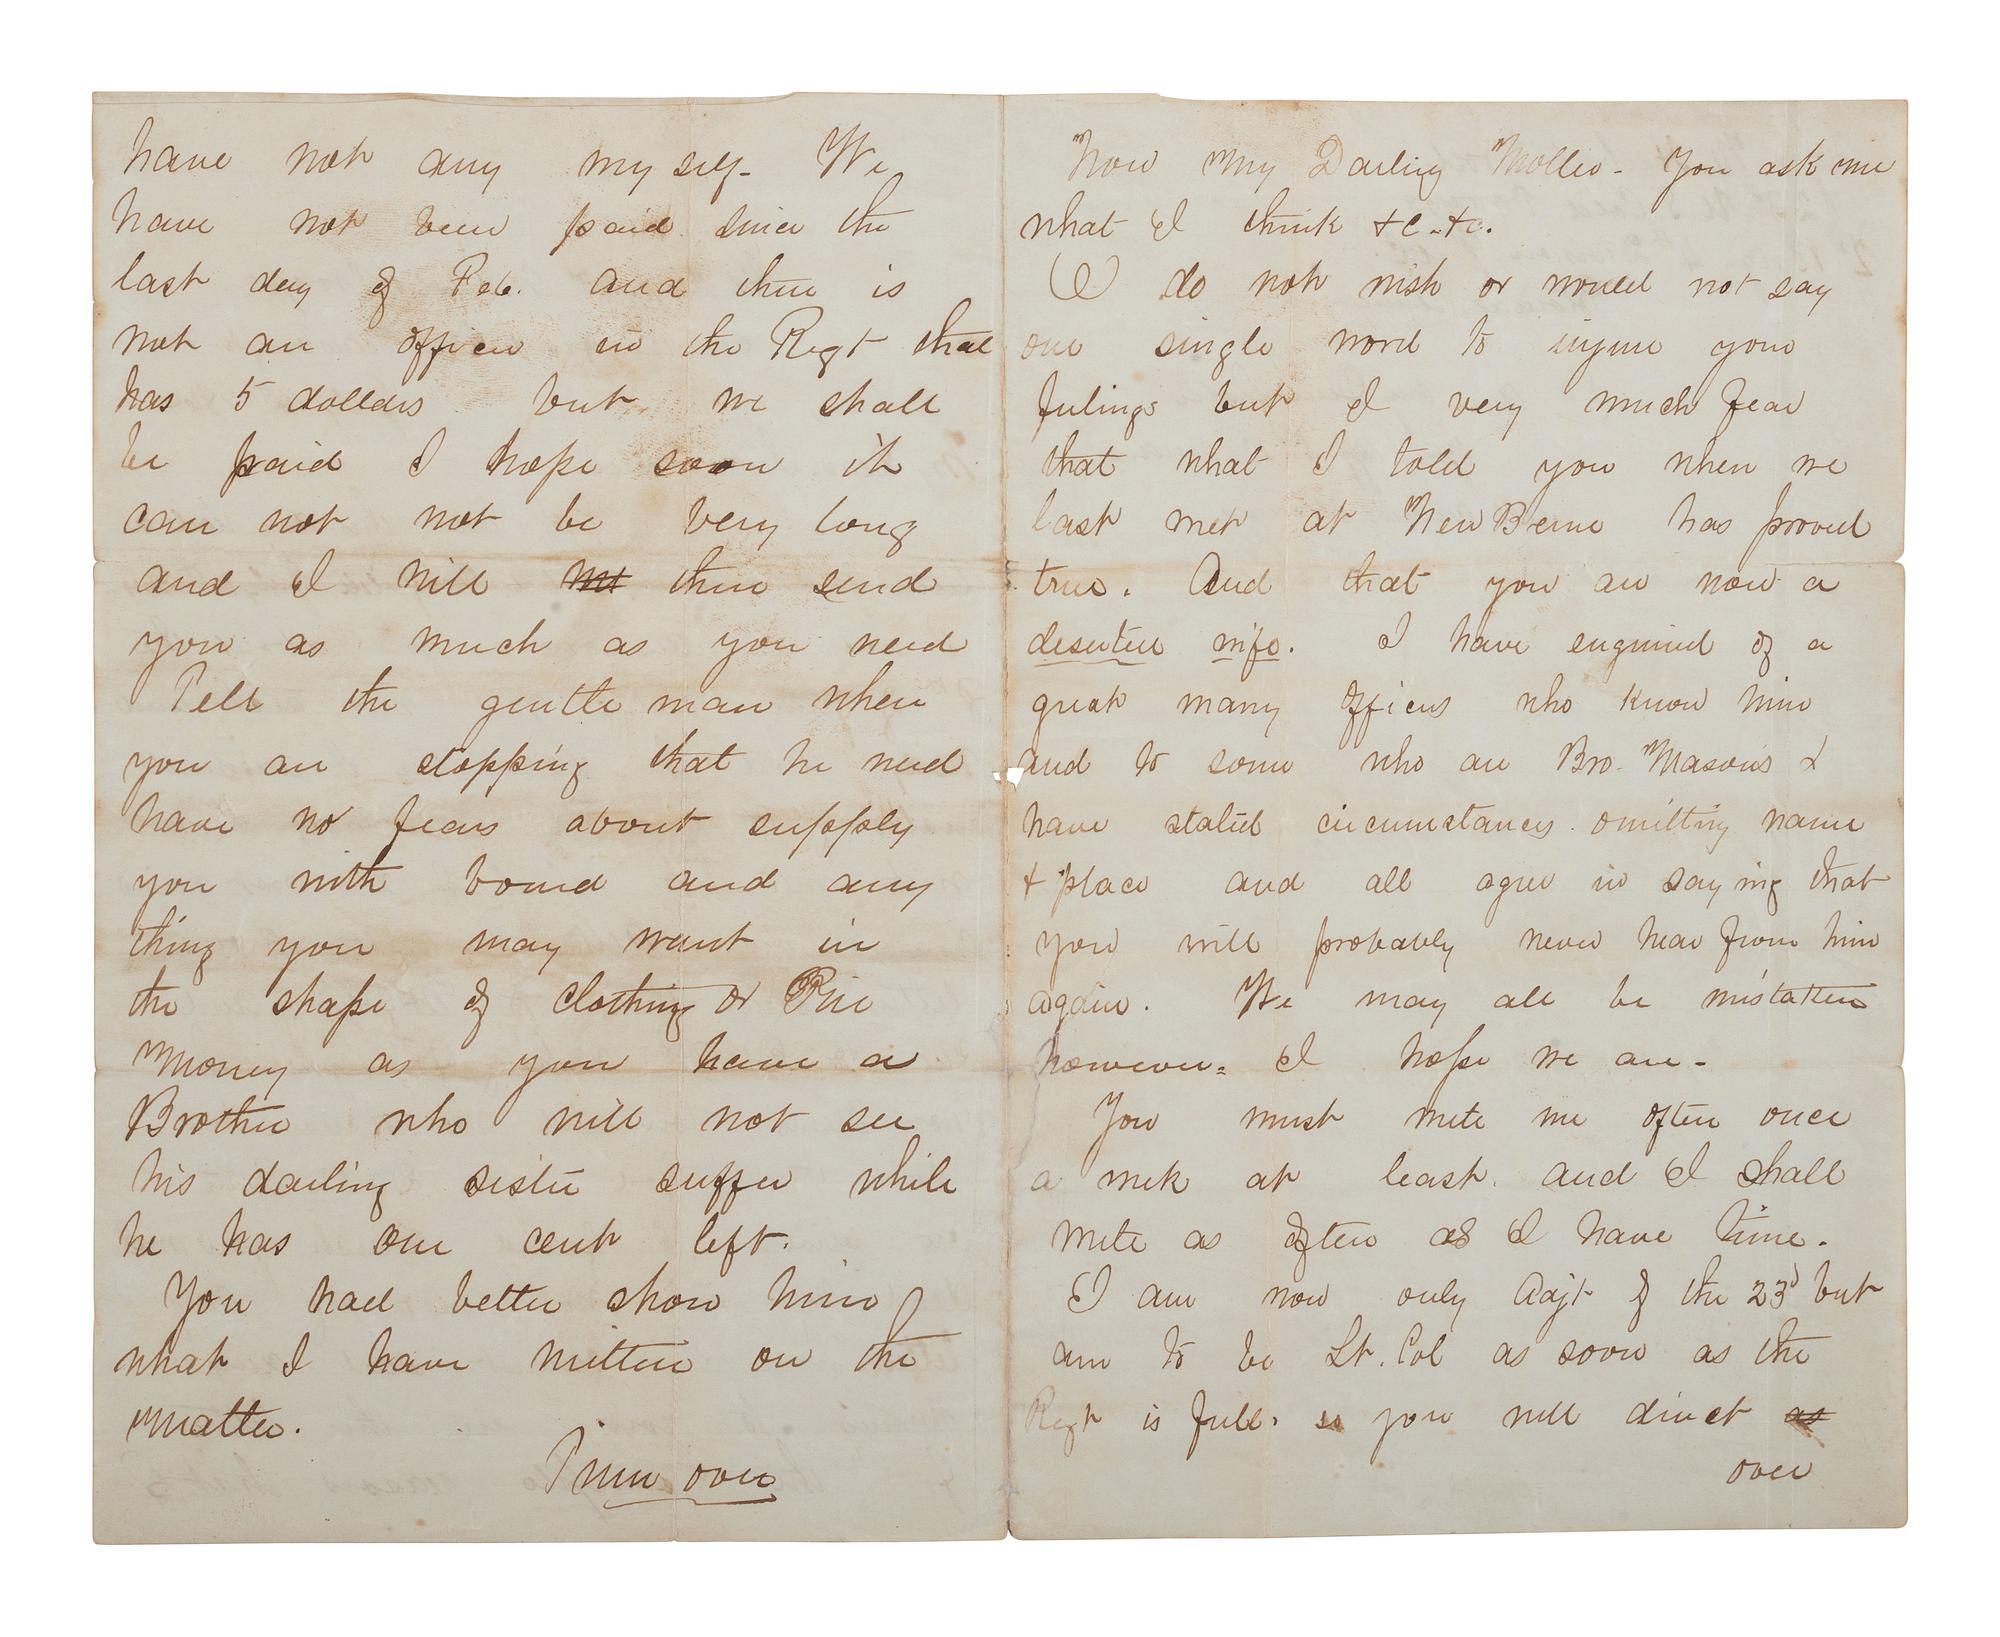 have not any my self- We
have not been paid since the
last day of Feb. and there is
not an officer in the Regt that
has 5 dollars but we shall
be paid I hope soon it
can not not be very long
and I will then send
you as much as you need
Tell the gentle man when
you are stopping that he need
have no fears about supply
you with board and any
thing you may want in
the shape of clothing or
money as you have a
Brother who will not see
his darling sister suffer while
he has one cent left.
You had better show him
what I have written on the
matter.
Turn over
Now My Darling Mollie - You ask me
what I think &c. &c.
I do not wish or would not say
one single word to injure your
feelings but I very much fear
that what I told you when we
last met at New Berne has proved
true. And that you are now a
deserted wife. I have enquired of a
great many officers who know him
and to some who are Bro. Masons &
have stated circumstances omitting name
& place and all agree in saying that
you will probably never hear from him
again. We may all be mistaken
however. I hope we are -
You must write me often once
a week at least. and I shall
write as often as I have time.
I am now only Adjt of the 23d but
am to be Lt. Col as soon as the
Regt is full. so you will direct as
over